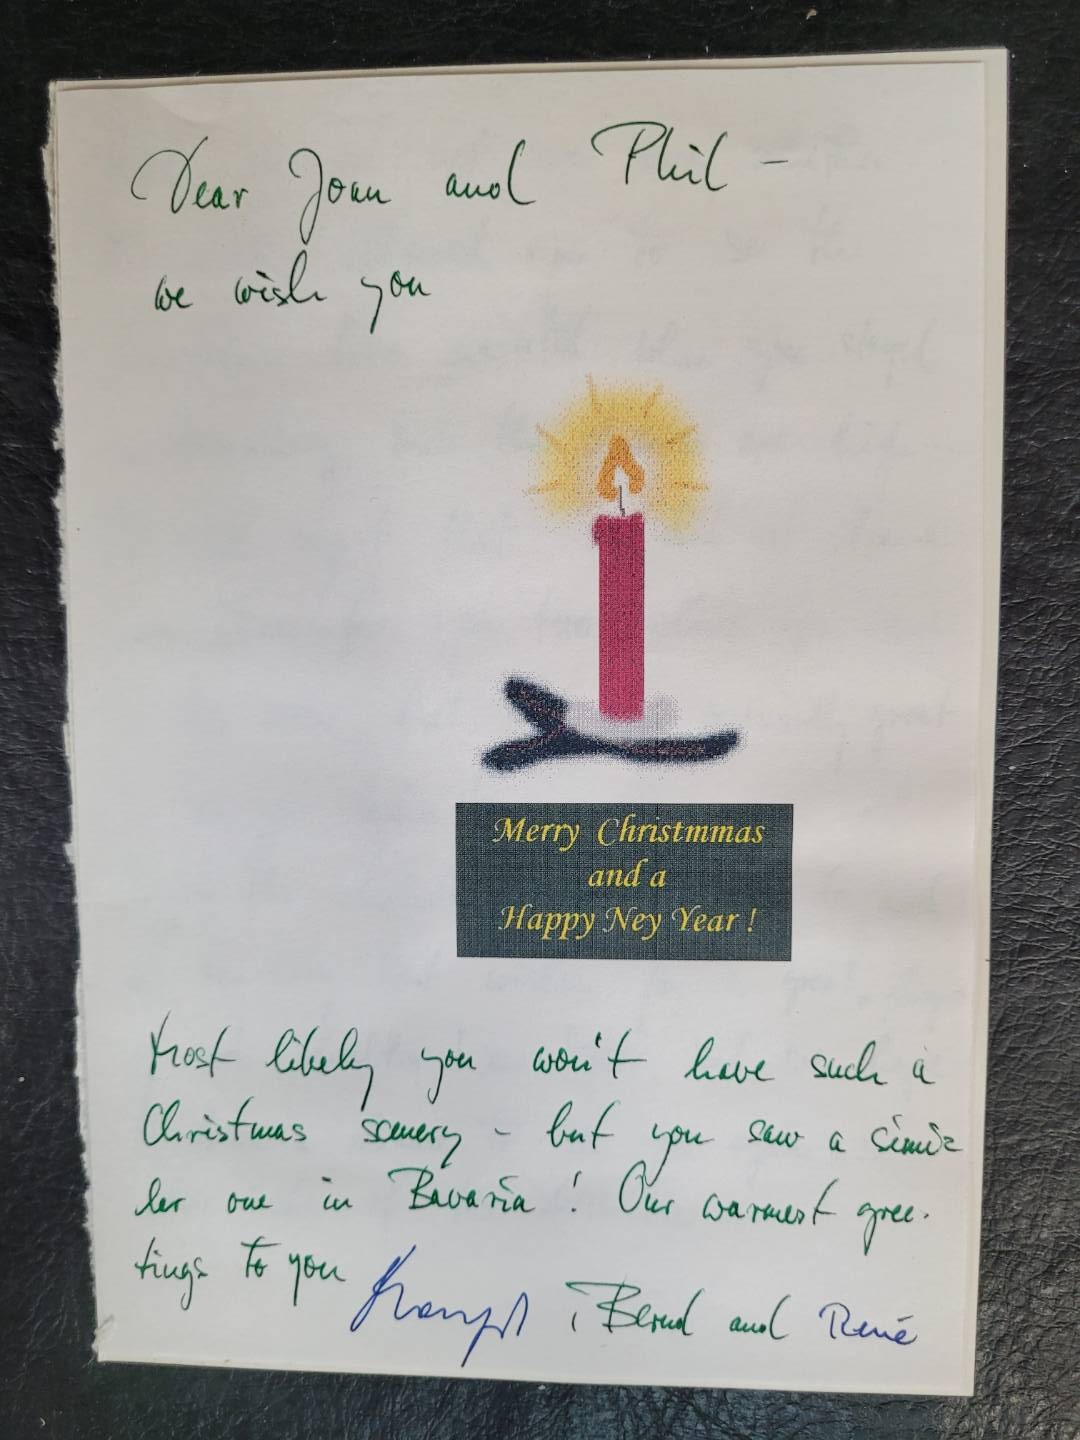 Dear Joan and Phil –
we wish you
Merry Christmmas
and a
Happy Ney Year !
Most likely you won't have such a
Christmas scenery - but you saw a simi-
ler one in Bavaria ! Our warmest gree-
tings to you
Bernd and René